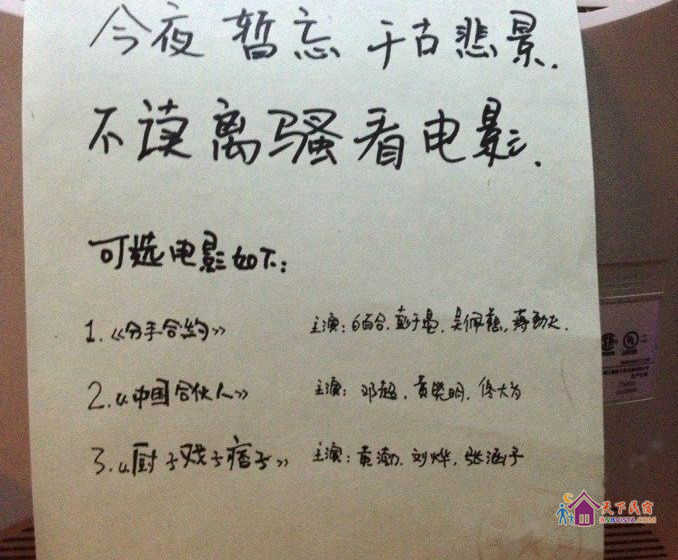 今夜 暂忘 千古 悲景.
不读离骚看电影.
可选电影如下:
1.《分手合约》 主演:白百合.彭于晏.吴佩慈.蒋劲夫.
2.《中国合伙人》 主演: 邓超.黄晓明.佟大为
3.《厨子戏子痞子》 主演:黄渤.刘烨.张涵予
天下民宿